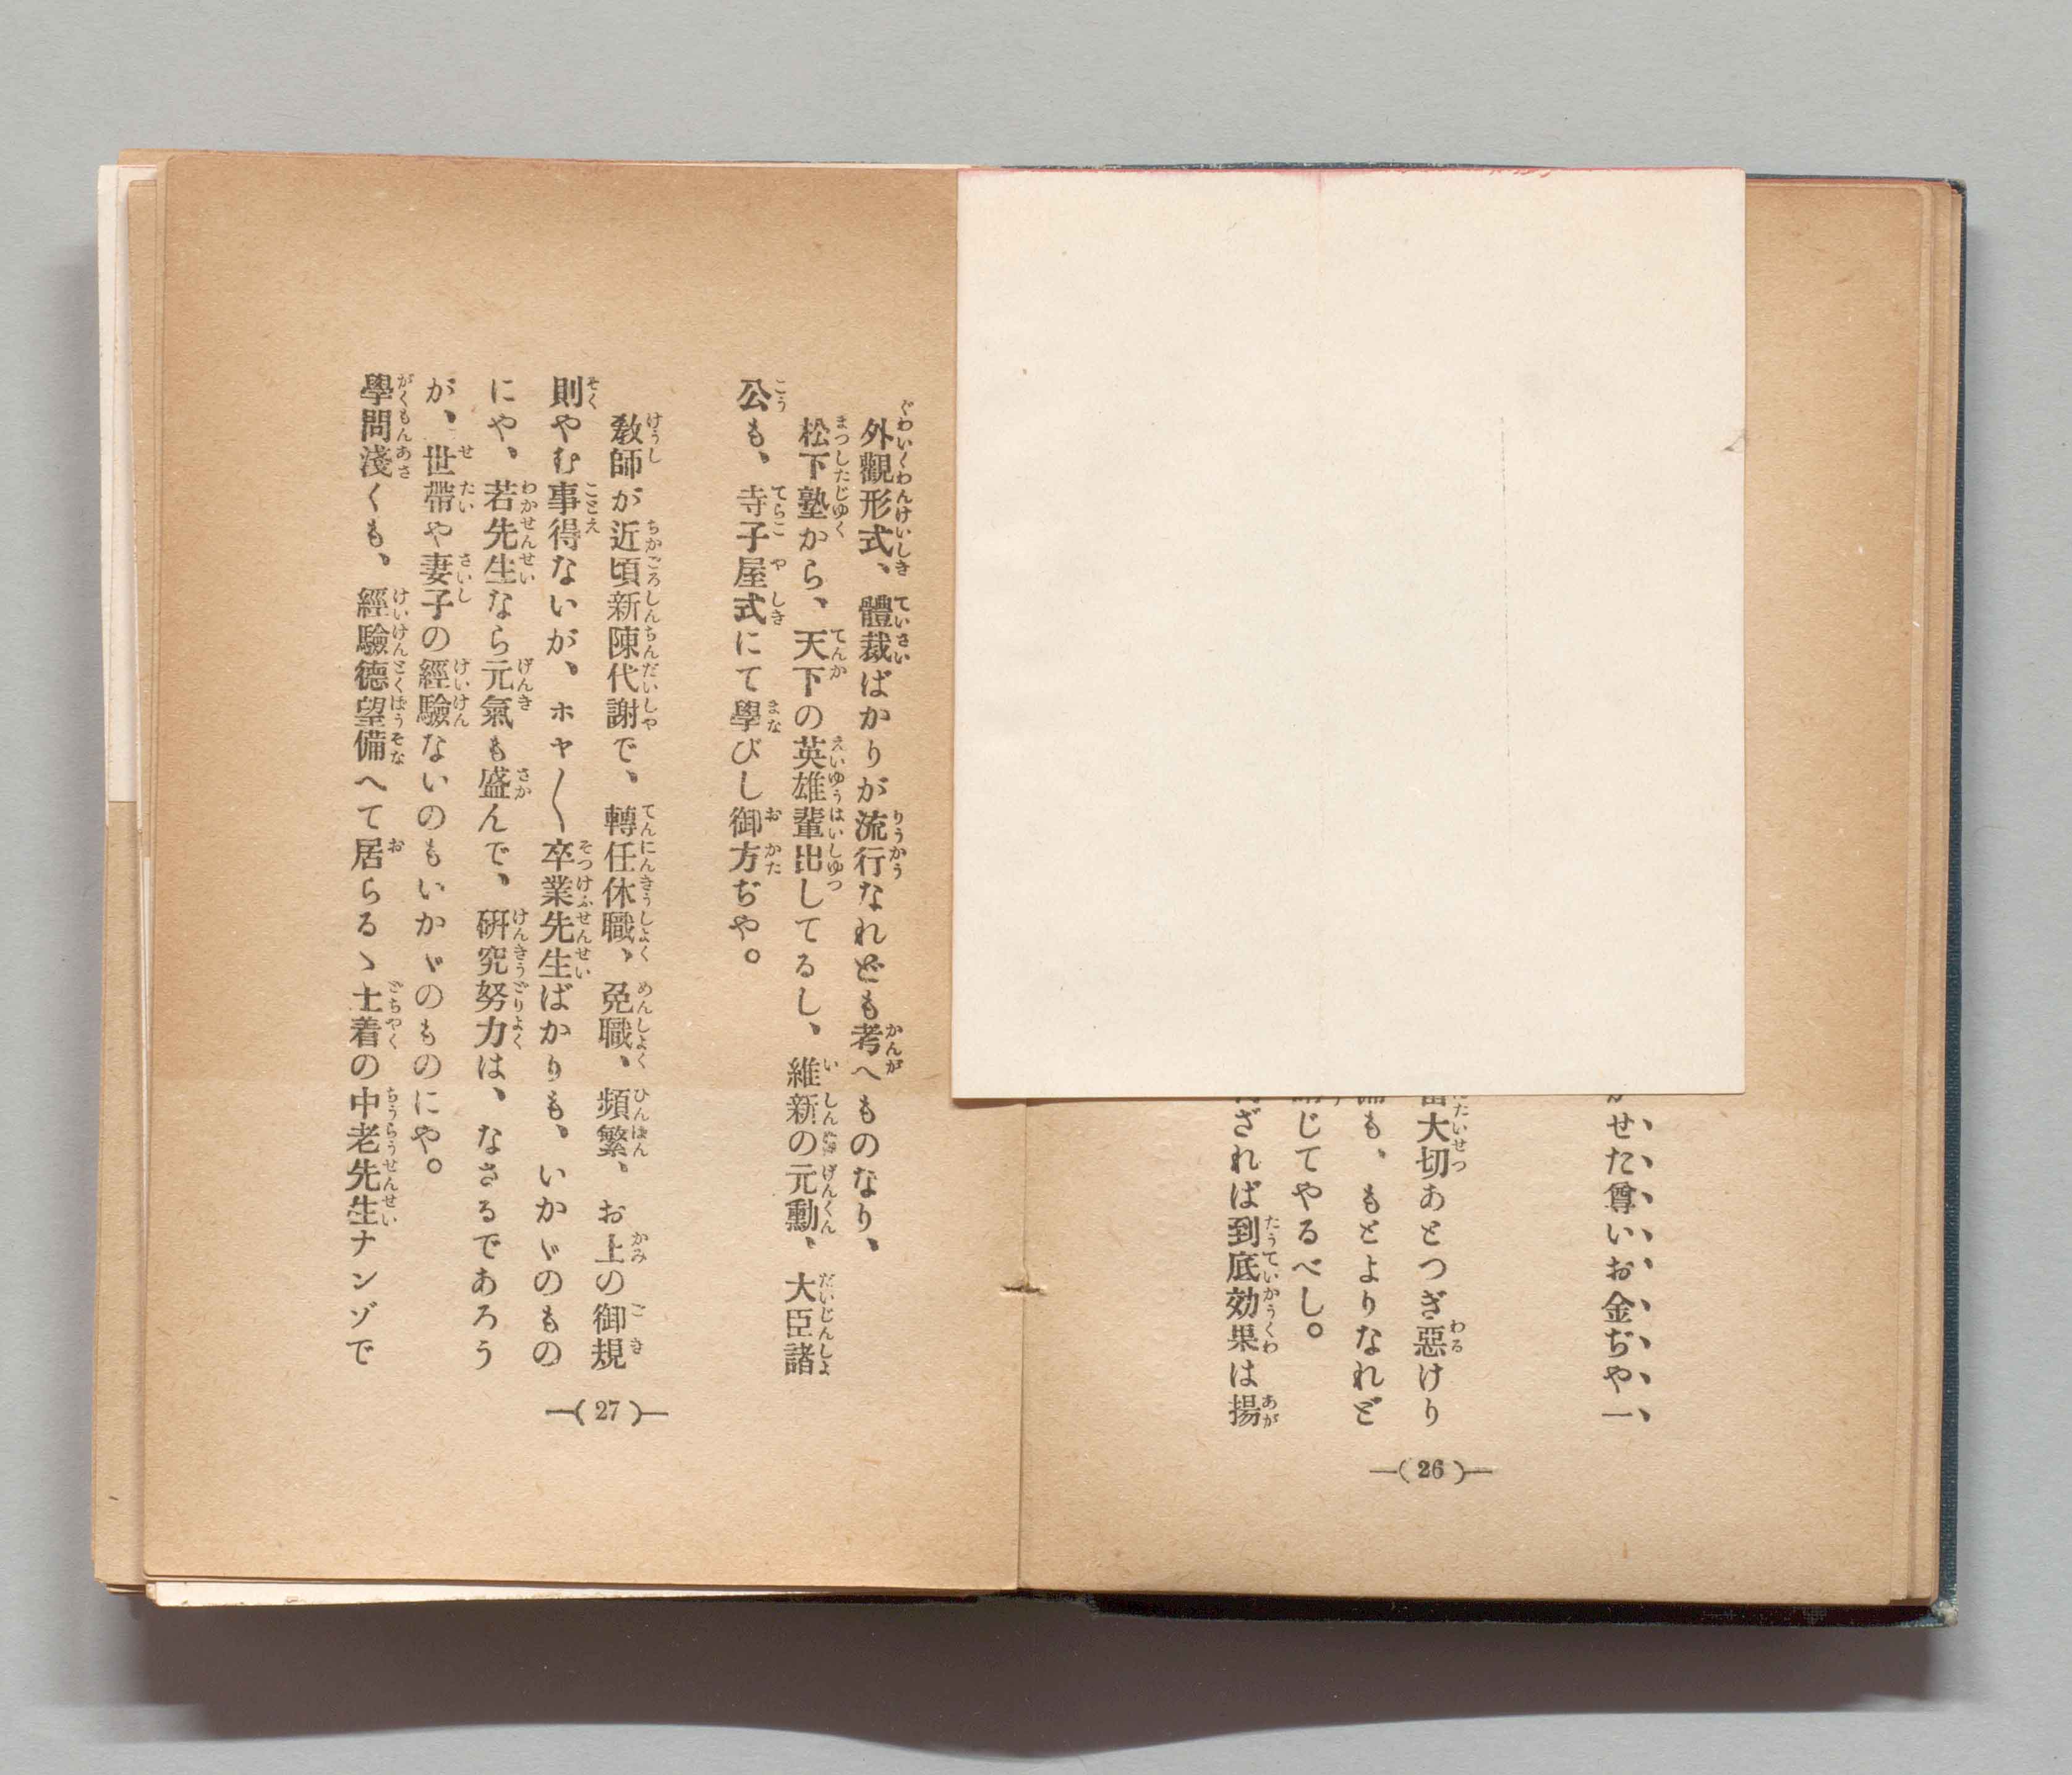 せた尊いお金ぢや一
大切あとつぎ惡けり
も、もとよりなれど
じてやるべし。
ざれば到底効果は揚
—( 26 )—
外觀形式、體裁ばかりが流行なれども考へものなり、
松下塾から、天下の英雄輩出してるし、維新の元勳、大臣諸
公も、寺子屋式にて學びし御方ぢや。
教師が近頃新陳代謝で、轉任休職、免職、頻繁、お上の御規
則やむ事得ないが、ホヤ〱卒業先生ばかりも、いかゞのもの
にや、若先生なら元氣も盛んで、硏究努力は、なさるであろう
が、世帶や妻子の經驗ないのもいかゞのものにや。
學問淺くも、經驗德望備へて居らるゝ土着の中老先生ナンゾで
—( 27 )—